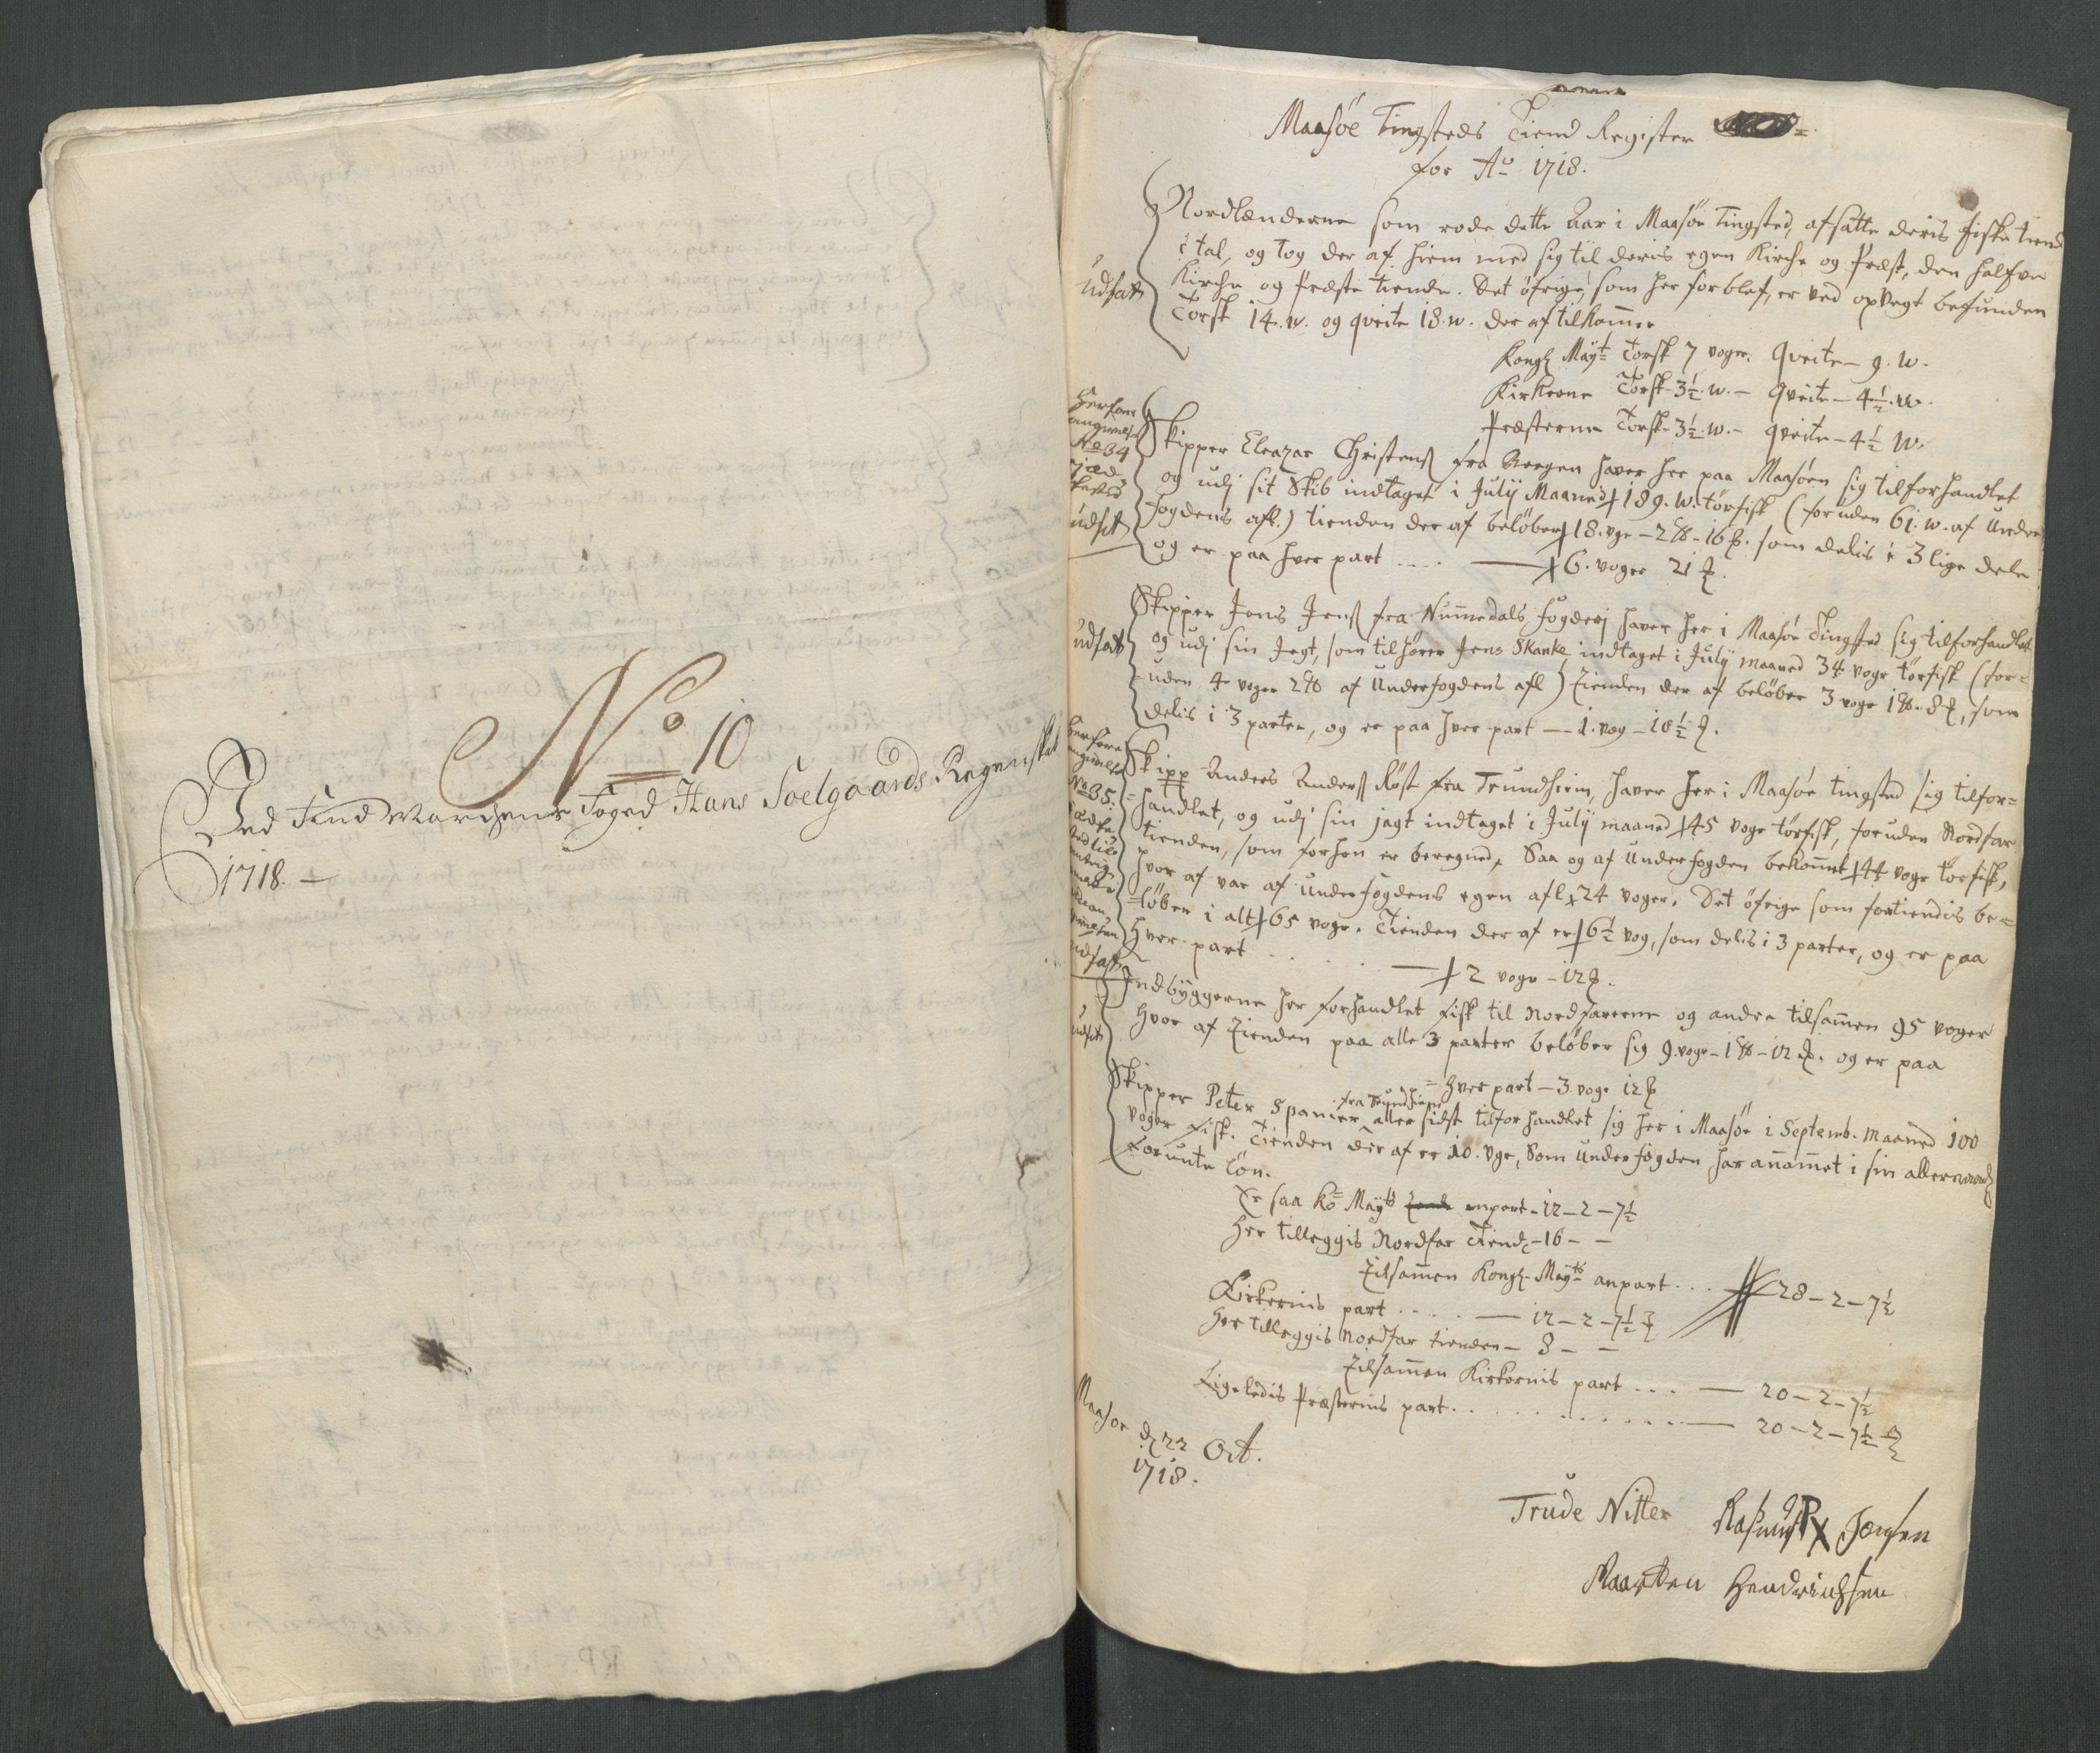 No 10
Ved Findmarchens Foged Hans Soelgaards Regenskab
1718.
Maasøe Tingsteds Tiend Register
for Ao 1718.
Nordlænderne som rode dette Aar i Maasøe Tingsted, afsatte deris fiske tiend
i tal, og tog der af hiem med sig til deris egen Kirche og Præst, den halfve
Kirche og Præste tiende. Det öfrige, som her forblef, er ved opvegt befunden
Torsk 14. w. og qveite 18. w. der af tilkommer
udsat
Kongl Mayt Torsk 7 voger. Qveite - 9. w.
Kirkerne Torsk - 3½. w. - Qveite - 4½. w.
Præsterne Torsk - 3½. w. - qveite - 4½ w.
Herfore
angivelse
No 34
udsat
Skipper Eleazar Christenß fra Bergen haver her paa Maasøen sig tilforhandlet
og udj sit Skib indtaget i Julij Maaned 189. w. törfisk (foruden 61. w. af Under
fogdens afl.) tienden der af belöber 18. vge - 2 - 16 . som delis i 3 lige dele
og er paa hver part .... 6. voger 21
udsat
Skipper Jens Jenß fra Nummedals fogderj haver her i Maasøe Tingsted sig tilforhandlet
og udj sin Jegt, som tilhører Jens Skanke, indtaget i Julij maaned 34 voge törfisk (for=
uden 4 voger 2 af Underfogdens afl) Tienden der af belöber 3 voge 1 - 8, som
delis i 3 parter, og er paa hver part - 1. vog - 10½
Herfore
angivelse
No 35.
udsat
Skipp Anders Anderß Röst fra Trundhiem, haver her i Maasøe tingsted sig tilfor=
handlet, og udj sin jagt indtaget i Julij maaned 45 voge törfisk, foruden Nordfar
tienden, som forhen er beregned, Saa og af Underfogden bekommet 44 voge törfisk,
hvor af var af underfogdens egen afl 24 voger. Det öfrige som fortiendis be=
löber i alt 65 voge. Tienden der af er 6½ vog, som delis i 3 parter, og er paa
hver part ..... 2 voge - 12
udsat
Indbyggerne her forhandlet fisk til Nordfarerne og andre tilsammen 95 voger
hvor af Tienden paa alle 3 parter belöber sig 9. voge - 1 - 12. og er paa
= hver part - 3. voge 12
Skipper Peter Spanier fra Trundhiem aller sidst tilforhandlet sig her i Maasøe i Septemb. Maaned 100
voger fisk. Tienden der af er 10. vge, som underfogden har anammet i sin allernaad
forunte Lön.
Er saa Ko Mayts anpart - 12 - 2 - 7½
Her tilleggis Nordfar Tiend - 16 - -
Tilsammen Kongl. Mayts anpart ... 28 - 2 - 7½
Kirkernis part .... 12 - 2 - 7½
Her tilleggis Nordfar tienden - 8 - -
Tilsammen Kirkernis part .... 20 - 2 - 7½
Ligeledis Præsternis part ..... 20 - 2 - 7½
Maasøe d 22 Oct.
1718.
Trude Nitter Rasmus R Jensen
Maarten Hendrichsen